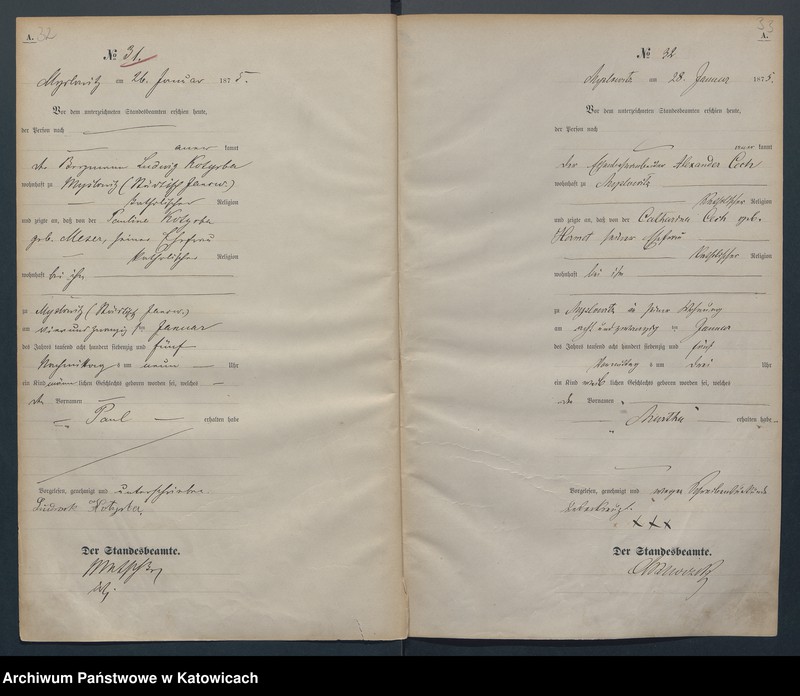 A. 32
№ 31.
Myslowitz am 26. Januar 1875.
Vor dem unterzeichneten Standesbeamten erschien heute,
der Person nach
kannt
der Bergmann Ludwig Kotyrba
wohnhaft zu Myslowitz (Städtisch Janow.)
katholischer Religion
und zeigte an, daß von der Pauline Kotyrba
geb. Meser, seiner Ehefrau
katholischer Religion
wohnhaft bei ihm
zu Myslowitz (Städtisch Janow.)
am vierundzwanzigsten Januar
des Jahres tausend acht hundert siebenzig und fünf
Nachmittag s um neun Uhr
ein Kind männlichen Geschlechts geboren worden sei, welches
den Vornamen
Paul erhalten habe
Vorgelesen, genehmigt und unterschrieben
Kotyrba
Der Standesbeamte.
33
A.
№ 32
Myslowitz am 28. Januar 1875.
Vor dem unterzeichneten Standesbeamten erschien heute,
der Person nach
kannt
der Alexander Cech
wohnhaft zu Myslowitz
katholischer Religion
und zeigte an, daß von der Catharina Cech geb.
seiner Ehefrau
katholischer Religion
wohnhaft bei ihm
zu Myslowitz in seiner Wohnung
am acht und zwanzigsten Januar
des Jahres tausend acht hundert siebenzig und fünf
Vormittag s um drei Uhr
ein Kind weiblichen Geschlechts geboren worden sei, welches
den Vornamen
Martha erhalten habe
Vorgelesen, genehmigt und wegen Schreibensunkunde
unterkreuzt.
xxx
Der Standesbeamte.
Archiwum Państwowe w Katowicach